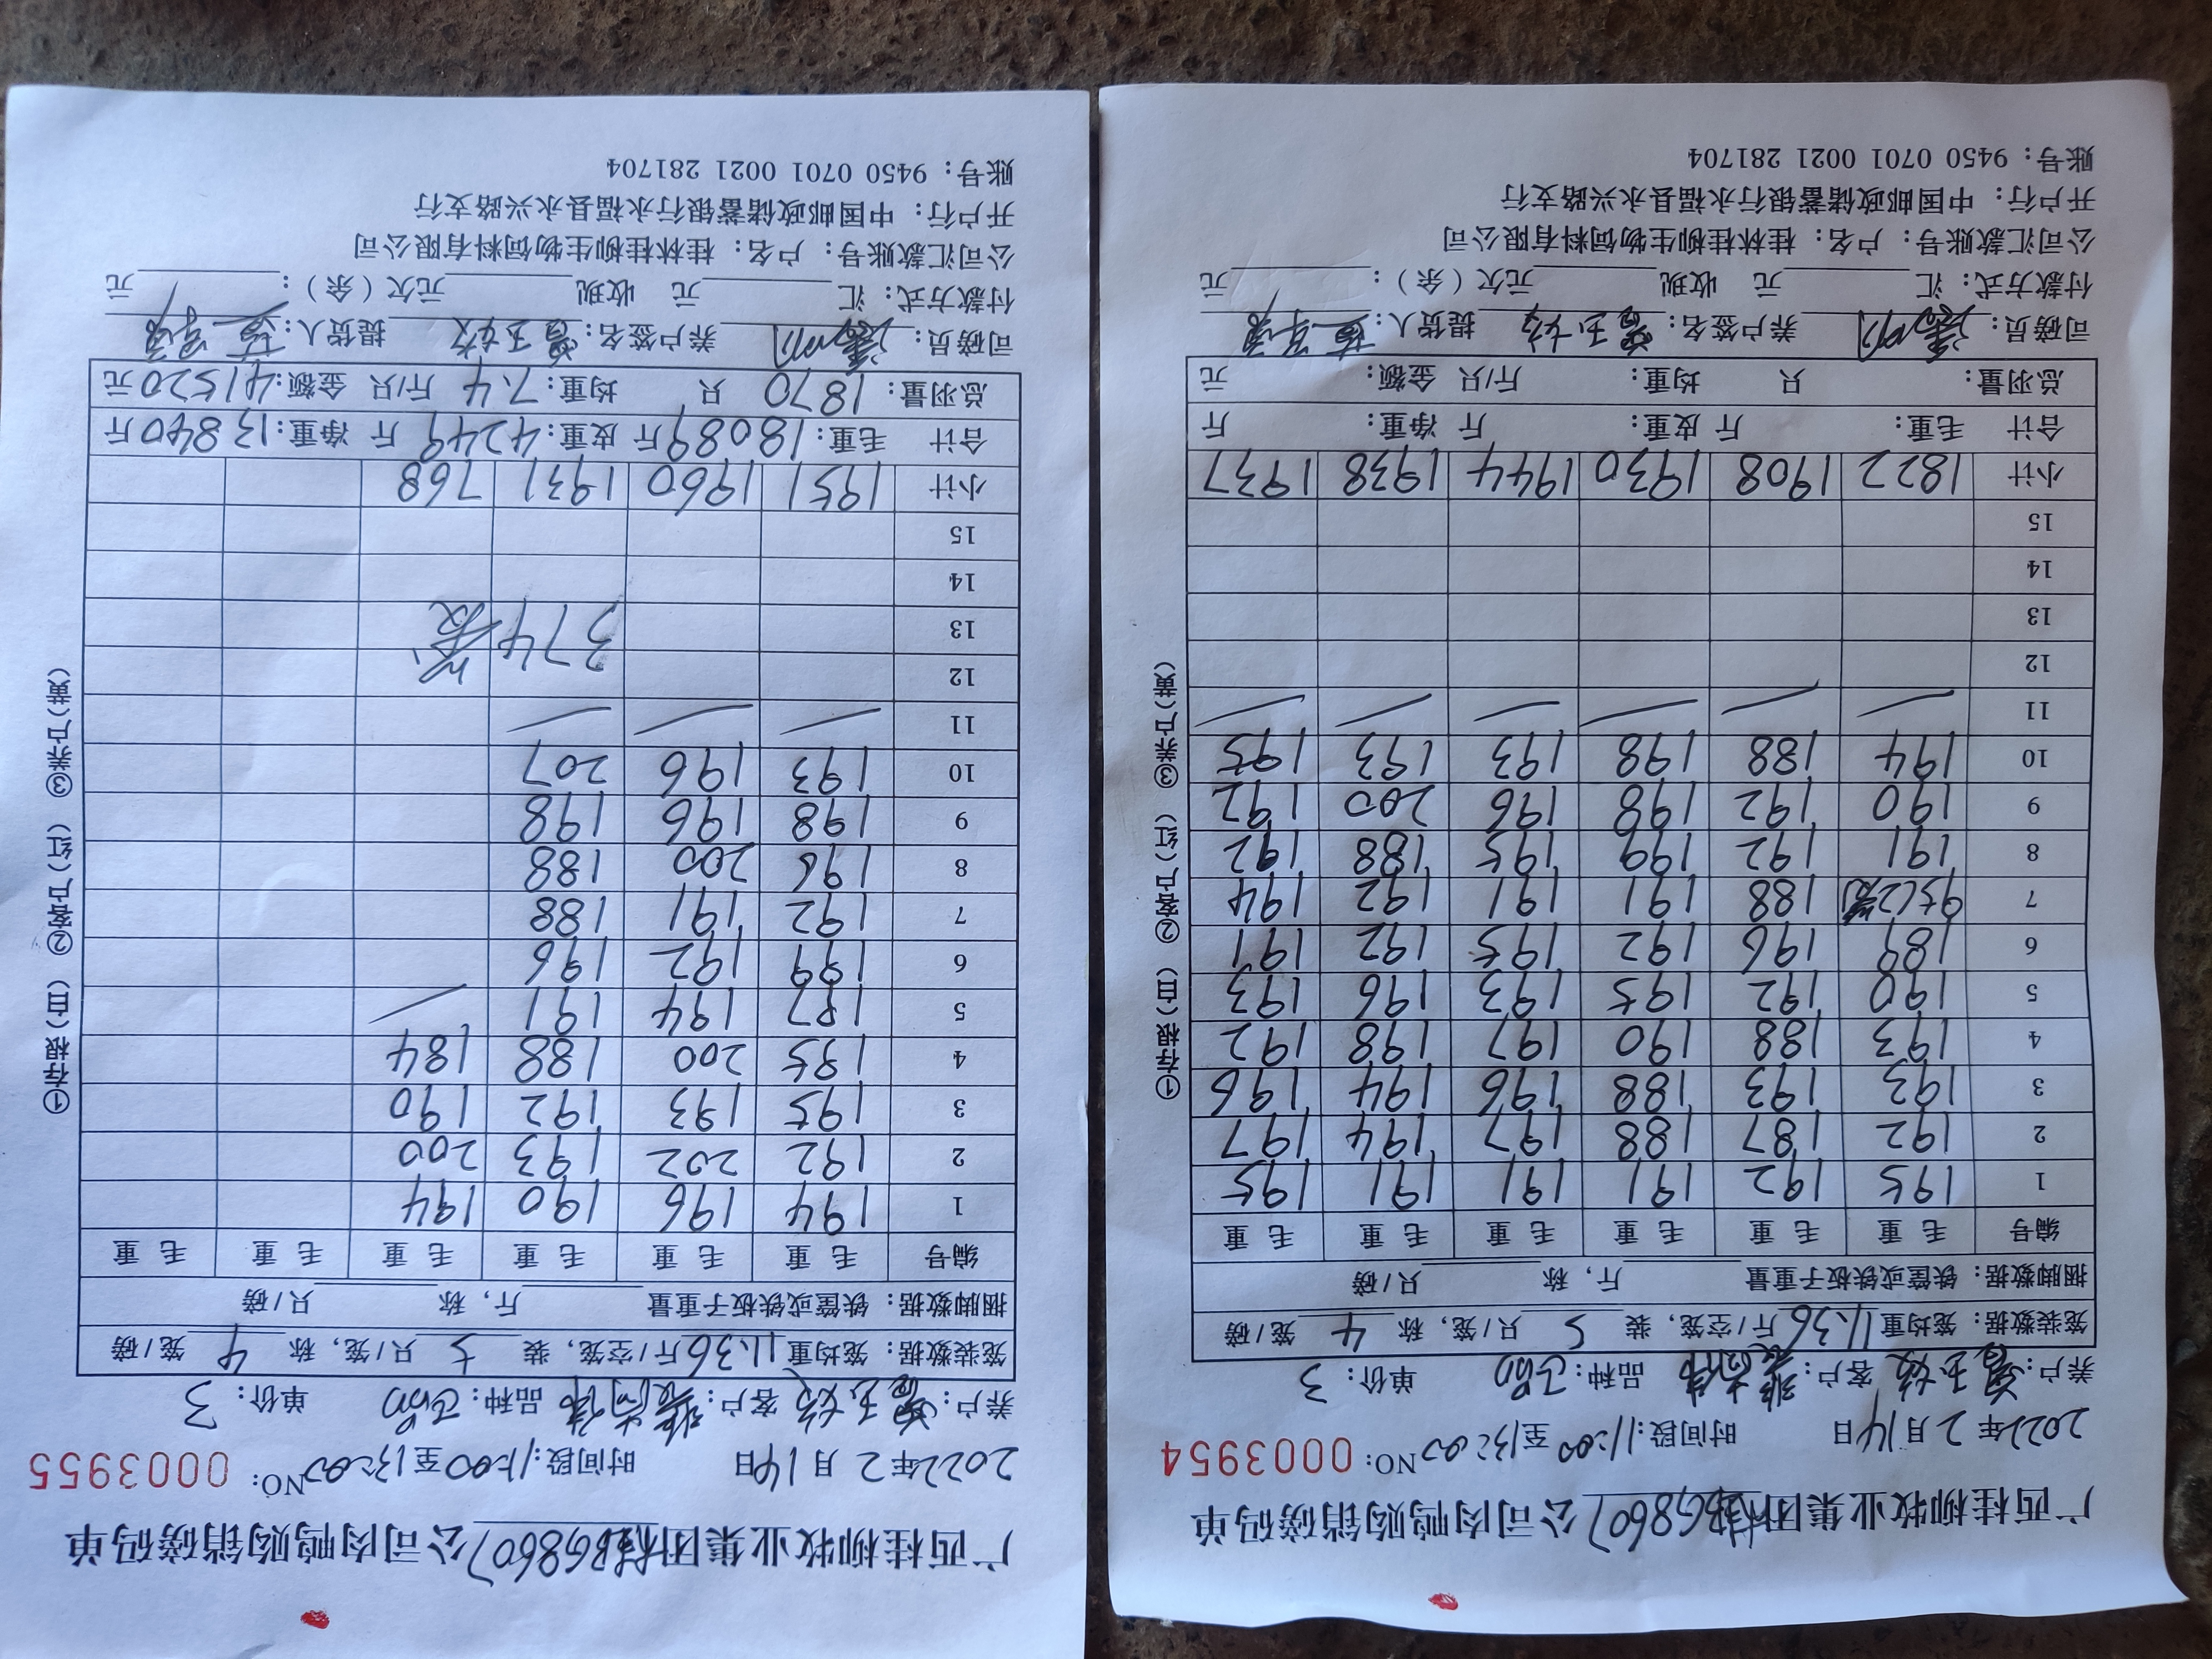 广西桂柳牧业集团桂BG8607公司肉鸭购销磅码单
2022年2月14日 时间段:11:00至13:00 NO: 0003954
养户: 客户: 品种:正品 单价:3
笼装数据:笼均重11.36斤/空笼,装5只/笼,称4笼/磅
捆脚数据:铁筐或铁板子重量 斤,称 只/磅
编号 毛重 毛重 毛重 毛重 毛重 毛重
1 195 192 191 191 191 195
2 192 187 188 197 194 197
3 193 193 188 196 194 196
4 193 188 190 197 198 192
5 190 192 195 193 196 193
6 189 196 192 195 192 191
7 95(2笼) 188 191 191 192 194
8 191 192 199 195 188 192
9 190 192 198 196 200 192
10 194 188 198 193 193 195
11
12
13
14
15
小计 1822 1908 1930 1944 1938 1937
合计 毛重: 斤 皮重: 斤 净重: 斤
总羽量: 只 均重: 斤/只 金额: 元
司磅员: 养户签名: 提货人:
付款方式:汇 元 收现 元欠(余): 元
公司汇款账号:户名:桂林桂柳生物饲料有限公司
开户行:中国邮政储蓄银行永福县永兴路支行
账号:9450 0701 0021 281704
①存根(白) ②客户(红) ③养户(黄)
广西桂柳牧业集团桂BG8607公司肉鸭购销磅码单
2022年2月14日 时间段:11:00至13:00 NO: 0003955
养户: 客户: 品种:正品 单价:3
笼装数据:笼均重11.36斤/空笼,装5只/笼,称4笼/磅
捆脚数据:铁筐或铁板子重量 斤,称 只/磅
编号 毛重 毛重 毛重 毛重 毛重 毛重
1 194 196 190 194
2 192 202 193 200
3 195 193 192 190
4 195 200 188 184
5 197 194 191
6 199 192 196
7 192 191 188
8 196 200 188
9 198 196 198
10 193 196 207
11
12
13 374
14
15
小计 1951 1960 1931 768
合计 毛重:18089斤 皮重:4249斤 净重:13840斤
总羽量:1870只 均重:7.4斤/只 金额:41520元
司磅员: 养户签名: 提货人:
付款方式:汇 元 收现 元欠(余): 元
公司汇款账号:户名:桂林桂柳生物饲料有限公司
开户行:中国邮政储蓄银行永福县永兴路支行
账号:9450 0701 0021 281704
①存根(白) ②客户(红) ③养户(黄)